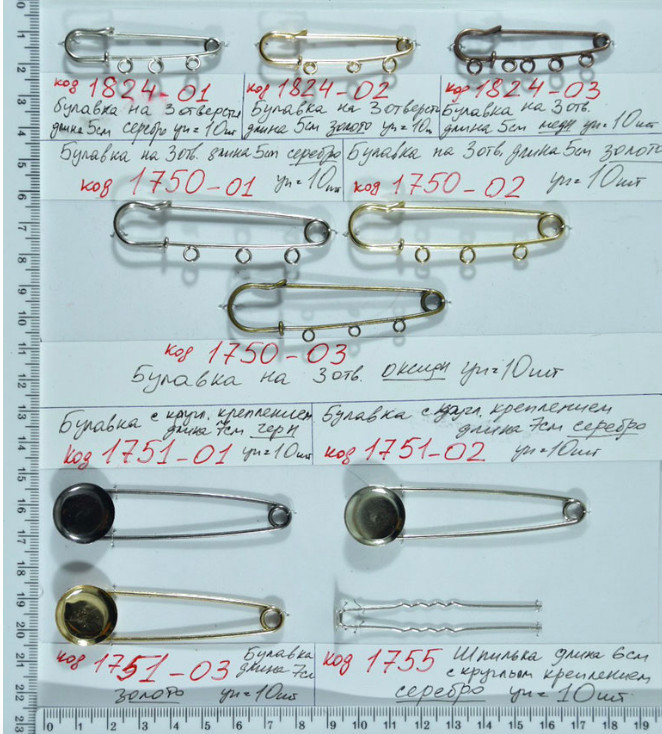 код 1824-01
код 1824-02
код 1824-03
Булавка на 3 отверсти
длина 5см серебро уп=10шт
Булавка на 3 отверсти
длина 5см золото уп=10ш
Булавка на 3 отв.
длина 5см медь уп=10шт
Булавка на 3 отв. длина 5см серебро
код 1750-01 уп=10шт
Булавка на 3 отв. длина 5см золото
код 1750-02 уп=10шт
код 1750-03
Булавка на 3 отв. оксид уп=10шт
Булавка с кругл. креплением
длина 7см черн
код 1751-01 уп=10шт
Булавка с кругл. креплением
длина 7см серебро
код 1751-02 уп=10шт
код 1751-03 Булавка
длина 7см
золото уп=10шт
код 1755 Шпилька длина 6см
с круглым креплением
серебро уп=10шт
0 1 2 3 4 5 6 7 8 9 10 11 12 13 14 15 16 17 18 19